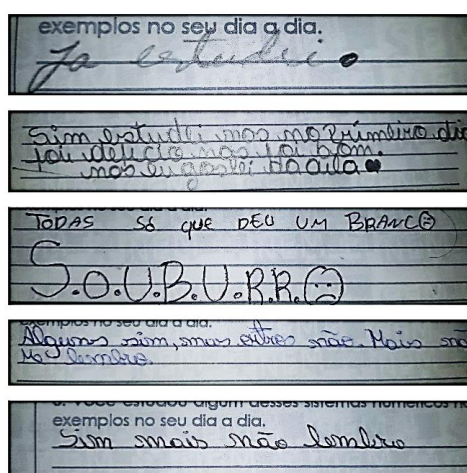 exemplos no seu dia a dia.
Ja estudei
Sim estudei mas no primeiro dia
foi dificio mas foi bom.
mas eu gostei da aula
TODAS Só que DEU UM BRANCO
S.O.U.B.U.R.R.O
exemplos no seu dia a dia.
Alguns sim, mas outros não. Mais não
me lembro.
3. Você estudou algum desses sistemas numéricos
exemplos no seu dia a dia.
Sim mais não lembro